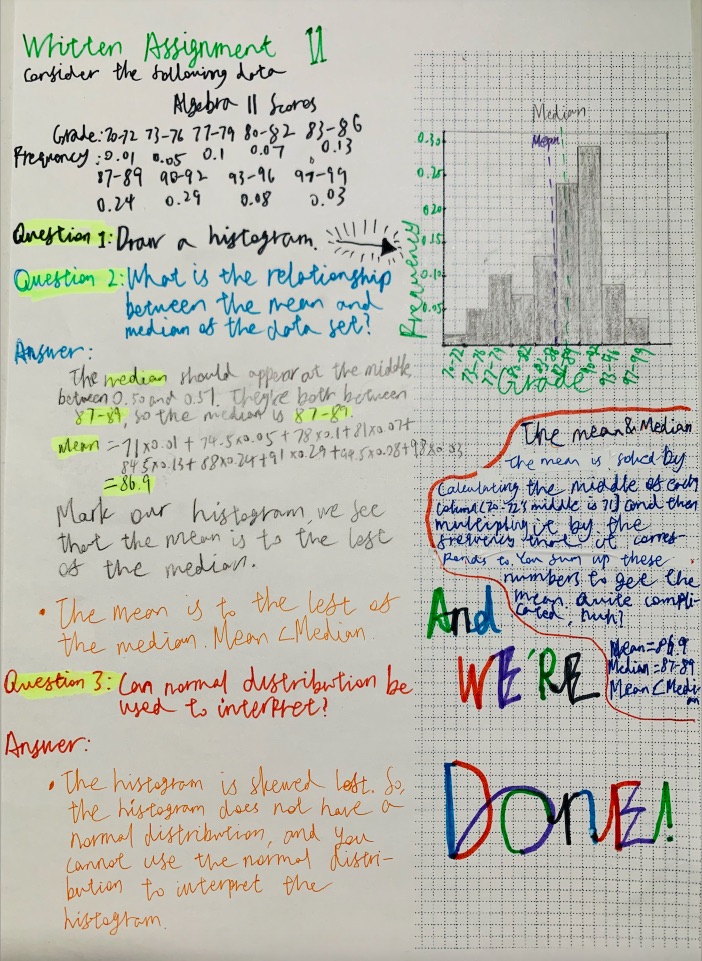 Written Assignment 11
Consider the following data
Algebra II Scores
Grade: 70-72 73-76 77-79 80-82 83-86
Frequency: 0.01 0.05 0.1 0.07 0.13
87-89 90-92 93-96 97-99
0.24 0.29 0.08 0.03
Question 1: Draw a histogram.
Question 2: What is the relationship
between the mean and
median of the data set?
Answer:
The median should appear at the middle,
between 0.50 and 0.51. They're both between
87-89, so the median is 87-89.
Mean = 71×0.01 + 74.5×0.05 + 78×0.1 + 81×0.07 +
84.5×0.13 + 88×0.24 + 91×0.29 + 94.5×0.08 + 98×0.03
= 86.9
Mark our histogram, we see
that the mean is to the left
of the median.
• The mean is to the left of
the median. Mean < Median.
Question 3: Can normal distribution be
used to interpret?
Answer:
• The histogram is skewed left. So,
the histogram does not have a
normal distribution, and you
cannot use the normal distri-
bution to interpret the
histogram.
Median
Mean
Frequency
0.30
0.25
0.20
0.15
0.10
0.05
70-72
73-76
77-79
80-82
83-86
87-89
90-92
93-96
97-99
Grade
The mean & Median
The mean is solved by
calculating the middle of each
column (70-72's middle is 71) and then
multiplying it by the
frequency that it corres-
ponds to. You sum up these
numbers to get the
mean. Quite compli-
cated, huh?
Mean = 86.9
Median = 87-89
Mean < Medi-
an
And
WE'RE
DONE!